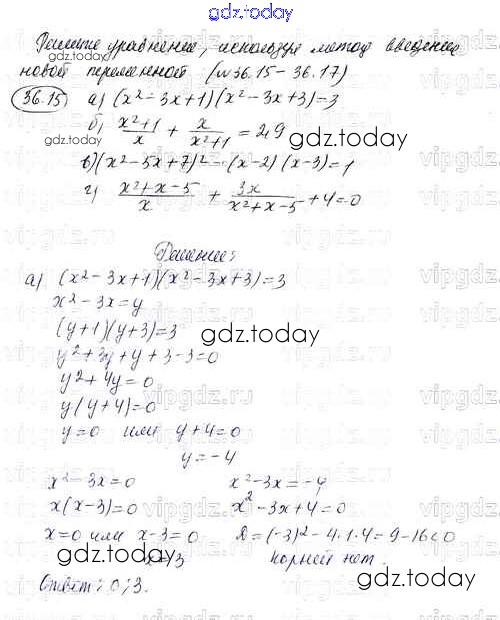 gdz.today
Решите уравнение, используя метод введения
новой переменной (№36.15-36.17)
36.15 а) (x²-3x+1)(x²-3x+3)=3
б) x²+1/x + x/x²+1 = 2,9
gdz.today
в) (x²-5x+7)²-(x-2)(x-3)=1
г) x²+x-5/x + 3x/x²+x-5 +4=0
gdz.today
Решение:
а) (x²-3x+1)(x²-3x+3)=3
x²-3x=y
(y+1)(y+3)=3
gdz.today
y²+3y+y+3-3=0
y²+4y=0
y(y+4)=0
y=0 или y+4=0
y=-4
x²-3x=0 x²-3x=-4
x(x-3)=0 x²-3x+4=0
x=0 или x-3=0 D=(-3)²-4·1·4=9-16<0
x=3 корней нет.
gdz.today
Ответ: 0; 3.
gdz.today